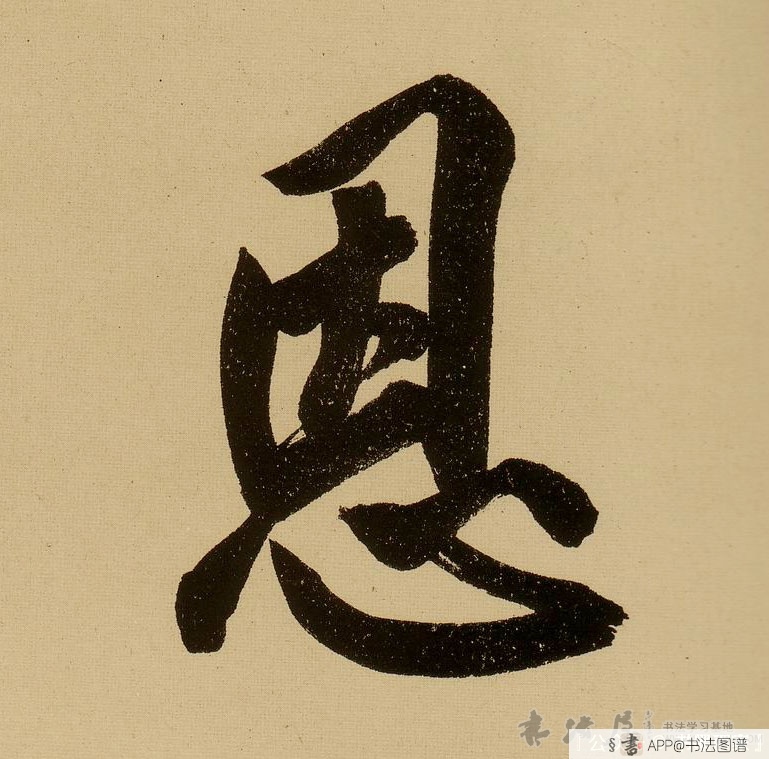 恩
书法学习基地
书 APP@书法图谱